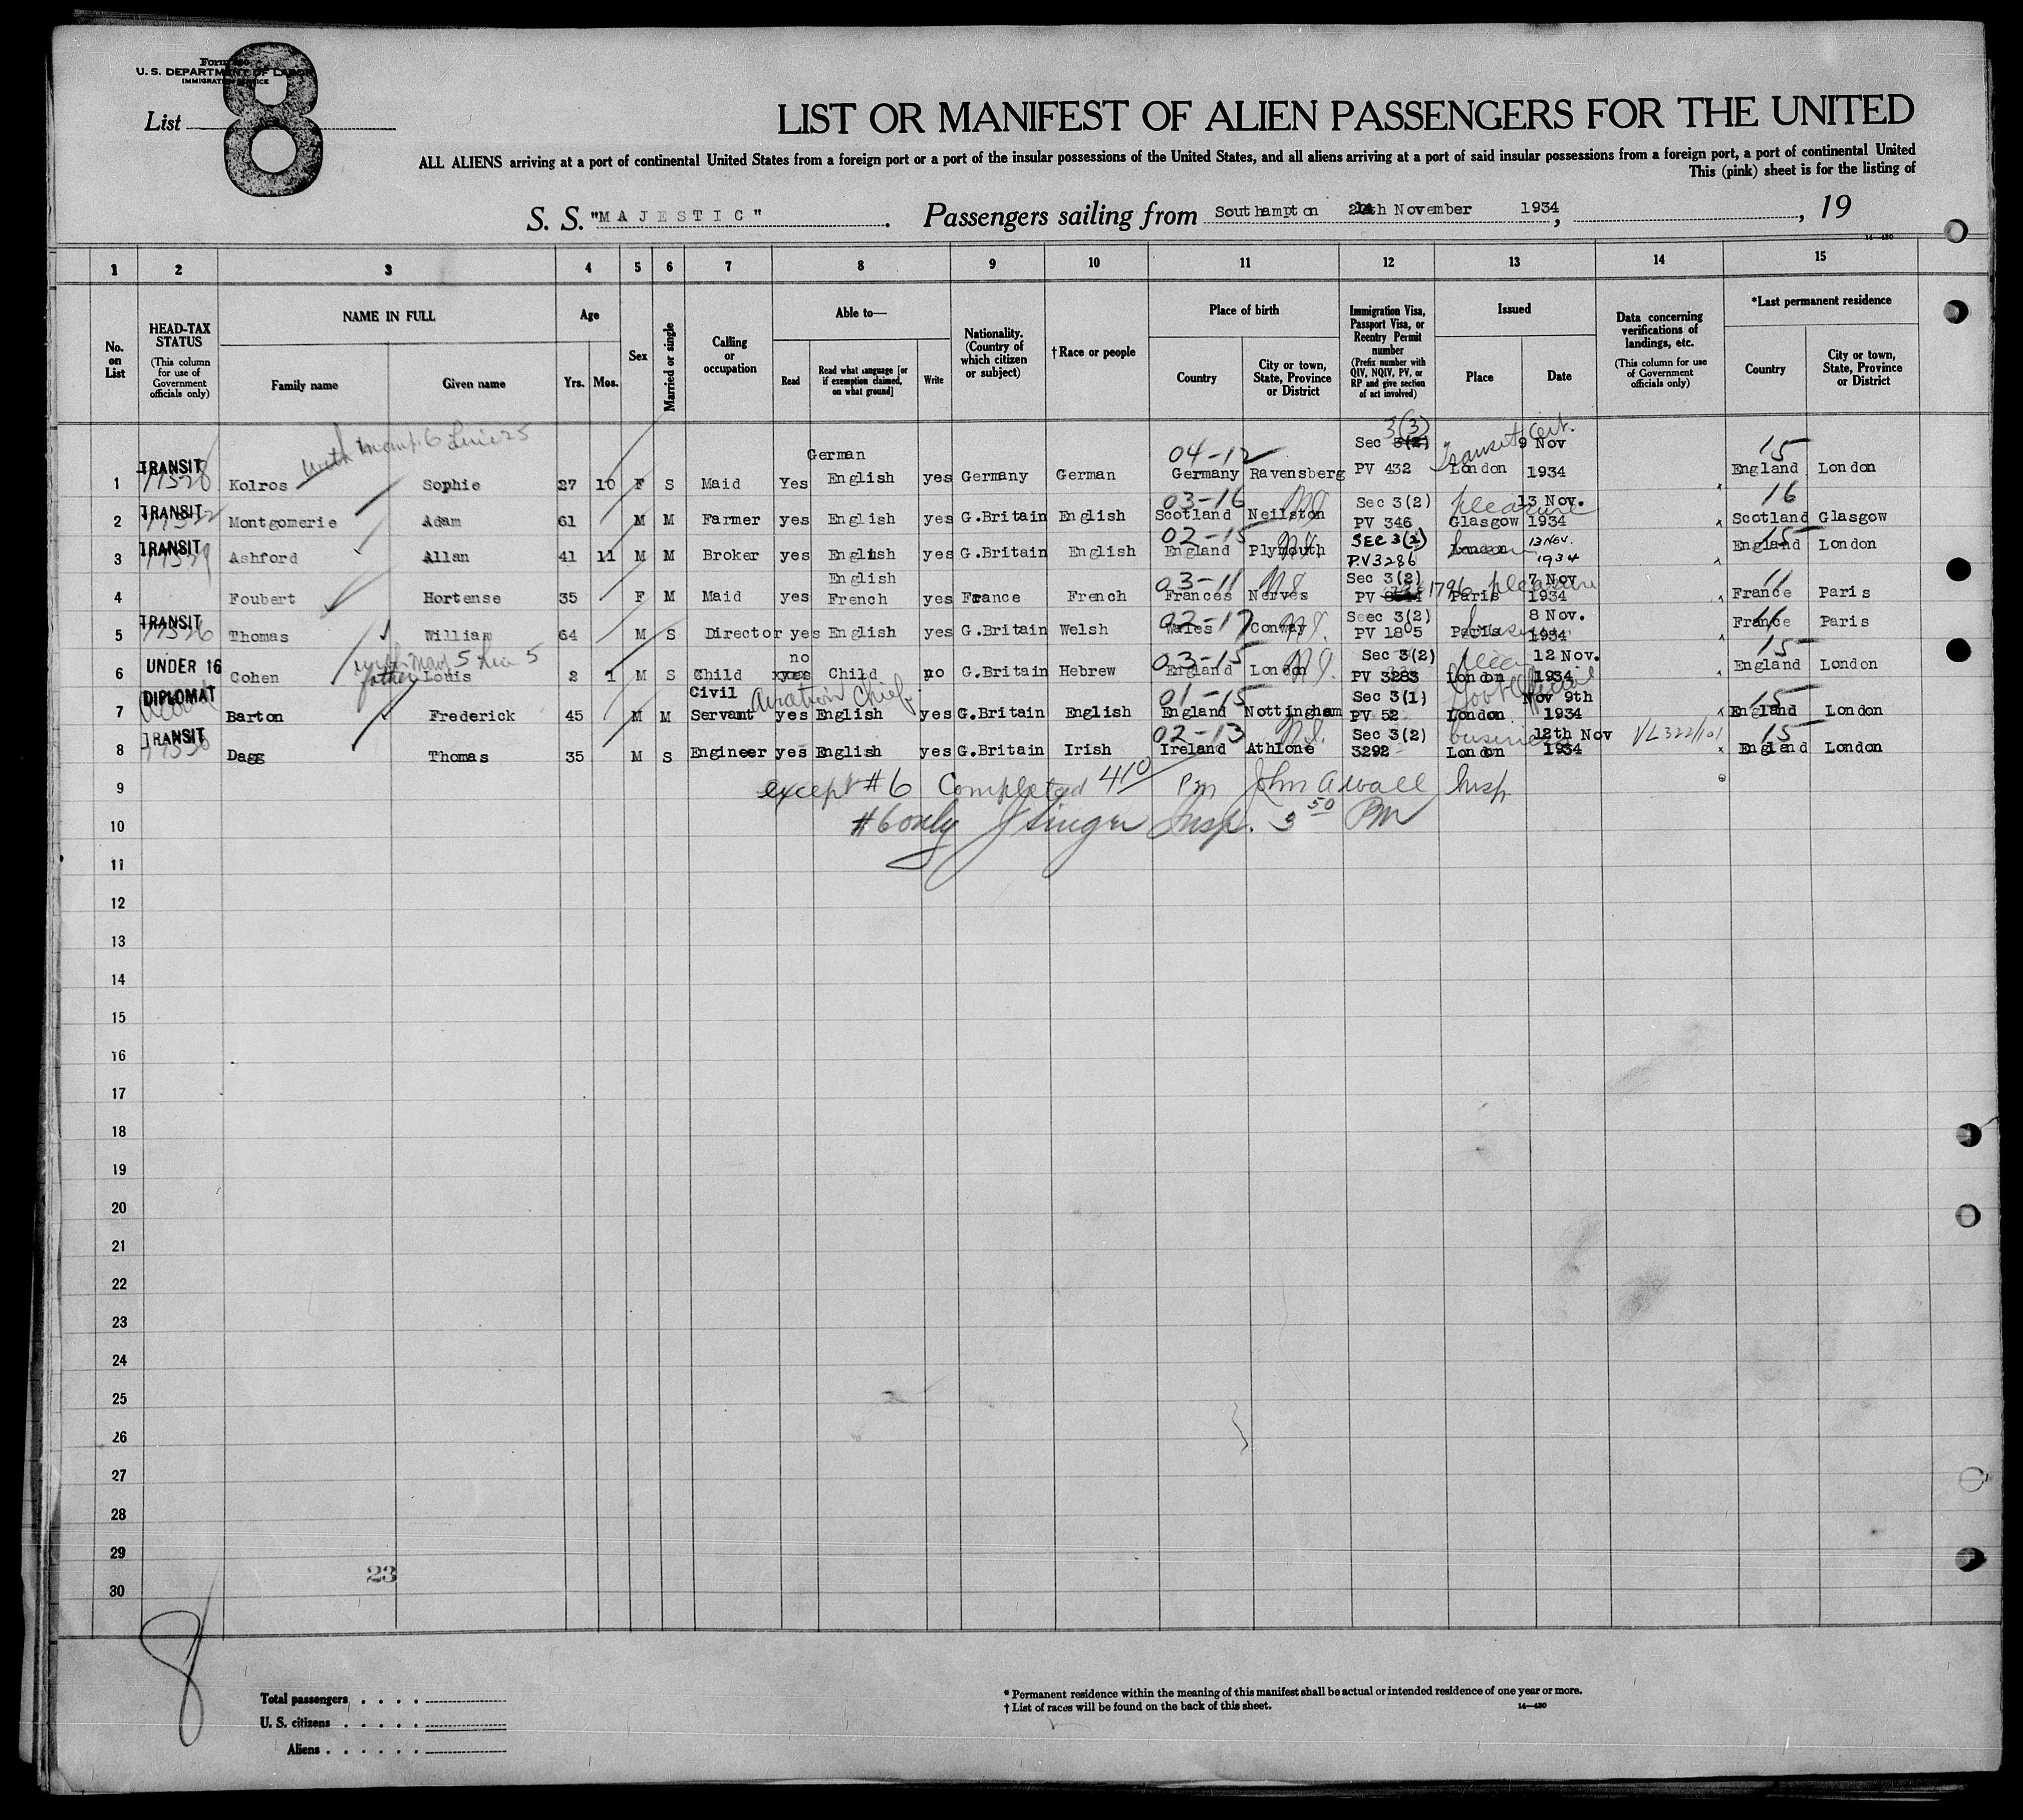 Form 500
U. S. DEPARTMENT OF LABOR
IMMIGRATION SERVICE
8
List
LIST OR MANIFEST OF ALIEN PASSENGERS FOR THE UNITED
ALL ALIENS arriving at a port of continental United States from a foreign port or a port of the insular possessions of the United States, and all aliens arriving at a port of said insular possessions from a foreign port, a port of continental United
This (pink) sheet is for the listing of
S. S. "MAJESTIC". Passengers sailing from Southampton November 1934, , 19
14—430
1 2 3 4 5 6 7 8 9 10 11 12 13 14 15
No. on List
HEAD-TAX STATUS (This column for use of Government officials only)
NAME IN FULL
Family name
Given name
Age
Yrs. Mos.
Sex
Married or single
Calling or occupation
Able to—
Read
Read what language [or if exemption claimed, on what ground]
Write
Nationality. (Country of which citizen or subject)
†Race or people
Place of birth
Country
City or town, State, Province or District
Immigration Visa, Passport Visa, or Reentry Permit number (Prefix number with QIV, NQIV, PV, or RP and give section of act involved)
Issued
Place
Date
Data concerning verifications of landings, etc. (This column for use of Government officials only)
*Last permanent residence
Country
City or town, State, Province or District
with Manf. 6 Line 25
German 04-12 3(3) Sec 3(2) Transit Cert. 9 Nov 15
1 TRANSIT Kolros Sophie 27 10 F S Maid Yes English yes Germany German Germany Ravensberg PV 432 London 1934 England London
03-16 Sec 3(2) pleasure 13 Nov. 16
2 TRANSIT Montgomerie Adam 61 M M Farmer yes English yes G.Britain English Scotland Neilston PV 346 Glasgow 1934 Scotland Glasgow
02-15 SEC 3(2) 13 Nov. 15
3 TRANSIT Ashford Allan 41 11 M M Broker yes English yes G.Britain English England Plymouth P.V 3286 London 1934 England London
English 03-11 Sec 3(2) pleasure 7 Nov 11
4 Foubert Hortense 35 F M Maid yes French yes France French Frances Nerves PV 1796 Paris 1934 France Paris
02-17 Seec 3(2) 8 Nov.
5 TRANSIT Thomas William 64 M S Director yes English yes G.Britain Welsh Wales Conway PV 1805 Paris 1934 France Paris
with Manf 5 Line 5 father no 03-15 Sec 3(2) 12 Nov. 15
6 UNDER 16 Cohen Louis 2 1 M S Child yes Child no G.Britain Hebrew England London PV 3283 London 1934 England London
Civil Aviation Chief 01-15 Sec 3(1) Govt Official Nov 9th 15
7 DIPLOMAT Barton Frederick 45 M M Servant yes English yes G.Britain English England Nottingham PV 52 London 1934 England London
02-13 Sec 3(2) business 12th Nov VL322/101 15
8 TRANSIT Dagg Thomas 35 M S Engineer yes English yes G.Britain Irish Ireland Athlone 3292 London 1934 England London
9 except #6 Completed 4 10 Pm John A Wall Insp
10 #6 only J Singer Insp. 3 50 PM
11
12
13
14
15
16
17
18
19
20
21
22
23
24
25
26
27
28
29
23
30
8
Total passengers
U. S. citizens
Aliens
* Permanent residence within the meaning of this manifest shall be actual or intended residence of one year or more.
† List of races will be found on the back of this sheet.
14—430